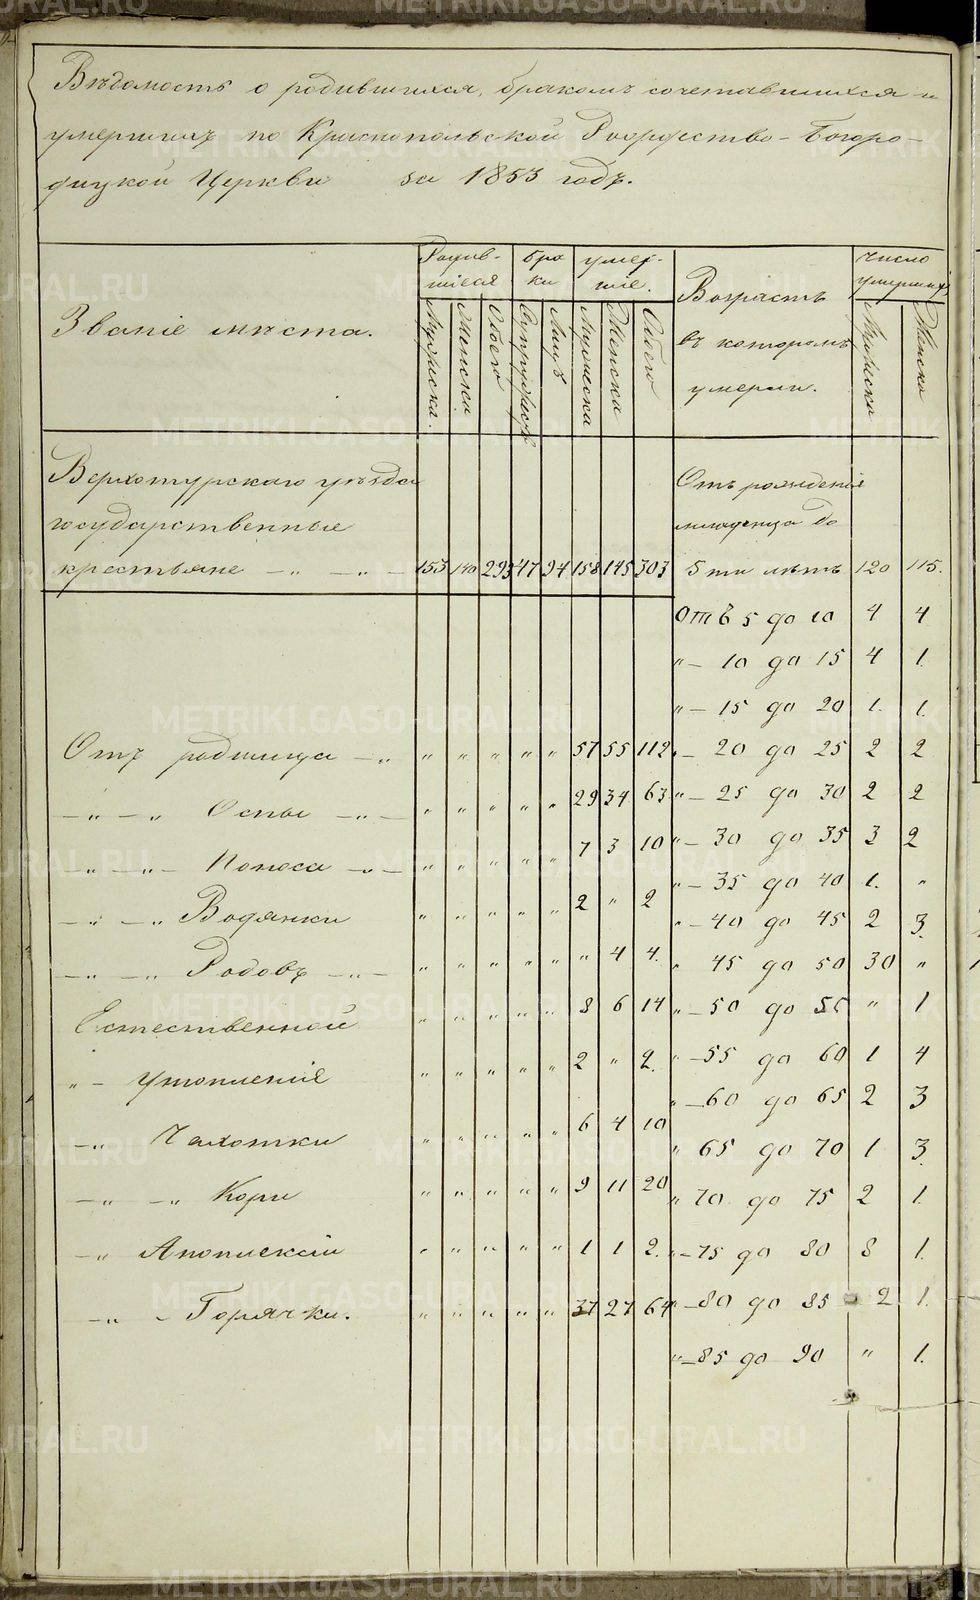 Вѣдомость о родившихся, бракомъ сочетавшихся и
умершихъ по Краснопольской Рождество-Богоро-
дицкой Церкви за 1853 годъ.
Званіе мѣста. Родив- шіеся бра ки умер- шіе. Возрастъ въ которомъ умерли. число умершихъ
Мужеска. Женска. Обоего Супружес. Лицъ Мужеска Женска Обоего Мужеска Женска
Верхотурскаго уѣзда Отъ рожденія
государственные младенца до
крестьяне — „ — „ — 153 140 293 47 94 158 145 303 5 ти лѣтъ 120 115.
Отъ 5 до 10 4 4
„ — 10 до 15 4 1.
„ — 15 до 20 1. 1.
Отъ родимца — „ „ „ „ „ „ 57 55 112 „ — 20 до 25 2 2
— „ — „ Оспы — „ — „ „ „ „ „ 29 34 63 „ — 25 до 30 2 2
— „ — „ — Поноса — „ — „ „ „ „ „ 7 3 10 „ — 30 до 35 3 2
„ — 35 до 40 1. „
— „ — „ Водянки „ „ „ „ „ 2 „ 2 „ — 40 до 45 2 3.
— „ — „ Родовъ — „ — „ „ „ „ „ „ 4 4. „ 45 до 50 30 „
Естественной „ „ „ „ „ 8 6 14 „ — 50 до 55 „ 1
„ — Утопленія „ „ „ „ „ 2 „ 2. „ — 55 до 60 1 4
„ — 60 до 65 2 3
— „ Чахотки „ „ „ „ „ 6 4 10 „ 65 до 70 1 3.
— „ — „ Кори „ „ „ „ „ 9 11 20 „ 70 до 75 2 1.
— „ Апоплексіи „ „ „ „ „ 1 1 2. „ — 75 до 80 8 1.
— „ — Горячки. „ „ „ „ „ 37 27 64 „ — 80 до 85 2 1.
„ — 85 до 90 „ 1.
METRIKI.GASO-URAL.RU